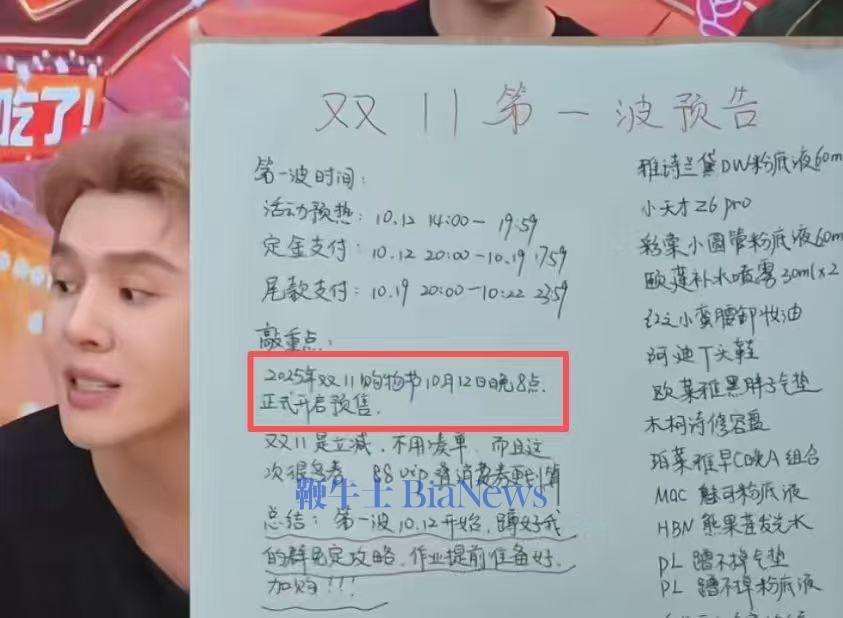 吃了!
双11第一波预告
第一波时间:
活动预热: 10.12 14:00-19:59
定金支付: 10.12 20:00-10.19 17:59
尾款支付: 10.19 20:00-10:22 23:59
敲重点:
2025年双11购物节10月12日晚8点
正式开启预售.
双11是立减.不用凑单.而且这
次很多券 88vip 消费券更划算
鞭牛士 BiaNews
总结: 第一波10.12开始,蹲好我
的群免定攻略,作业提前准备好.
加购!!!
雅诗兰黛DW粉底液60m
小天才Z6pro
彩棠小圆管粉底液60m
欧莲补水喷雾30ml×2
红之小蛮腰卸妆油
阿迪T头鞋
欧莱雅黑胖子气垫
木柯诗修容盘
珀莱雅早C晚A组合
Mac 魅可粉底液
HBN 熊果苷发光水
PL 蹭不掉气垫
PL 蹭不掉粉底液